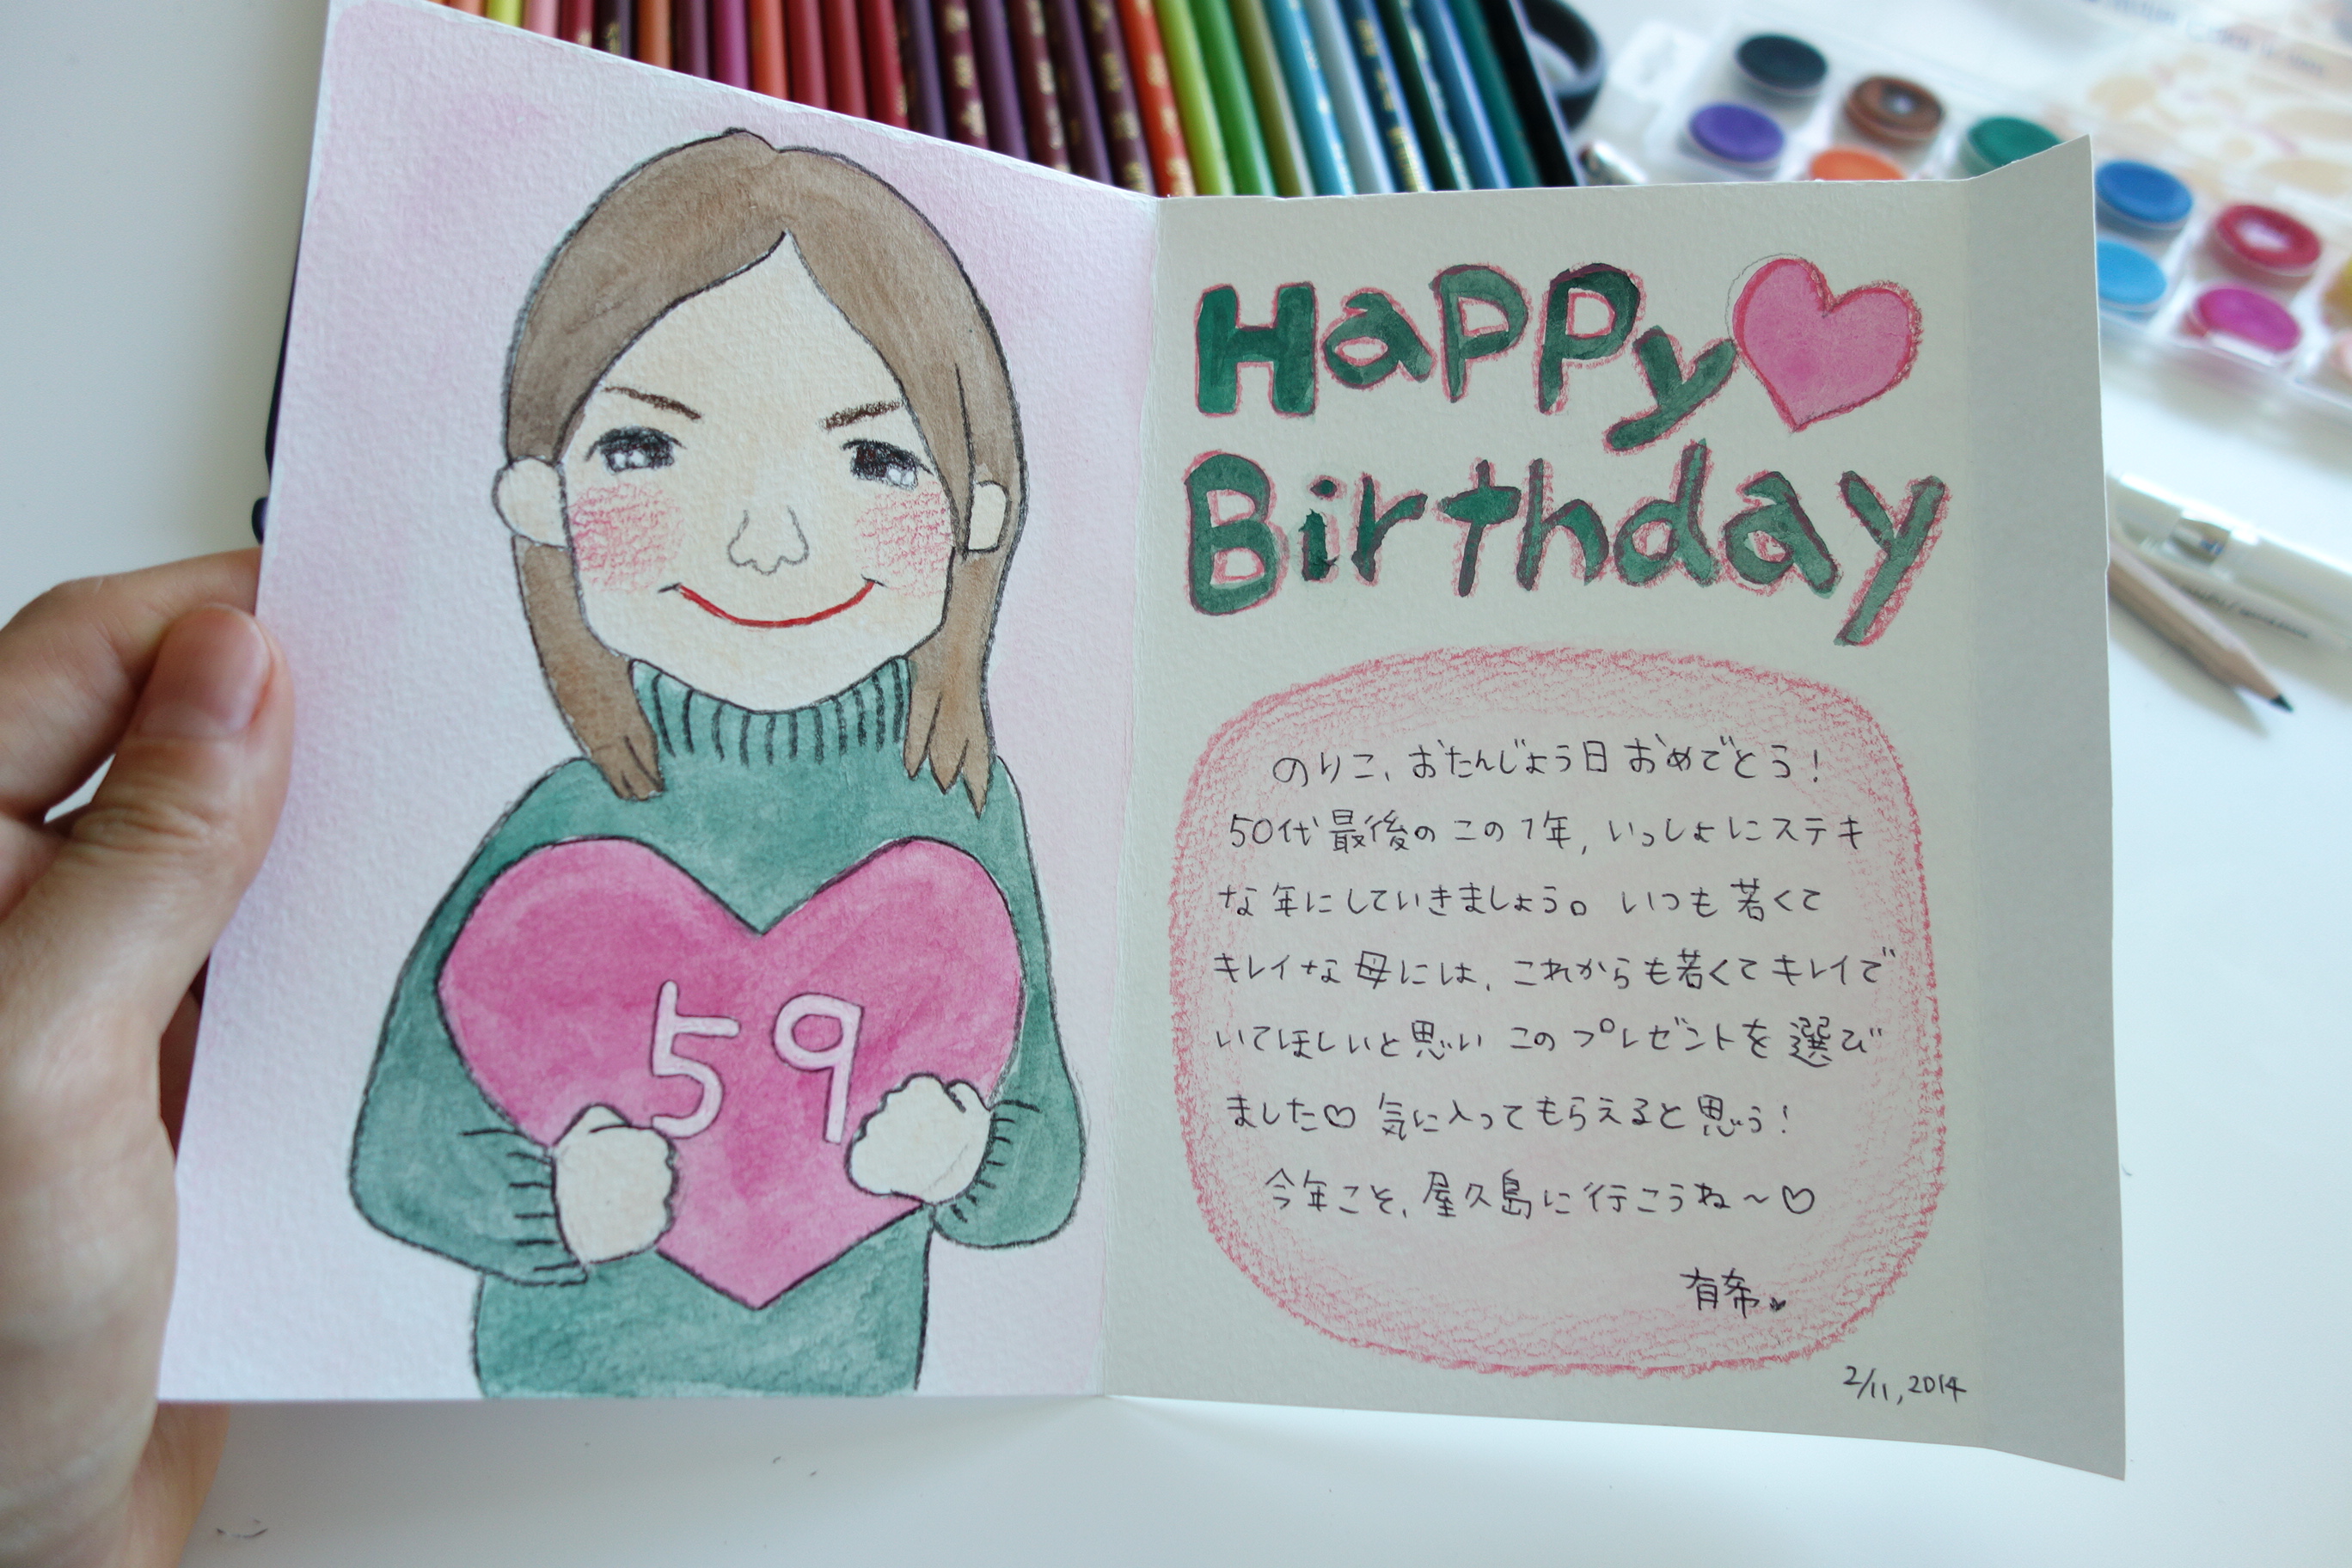 59
Happy♡
Birthday
のりこ、おたんじょう日おめでとう!
50代最後のこの1年,いっしょにステキ
な年にしていきましょう。いつも若くて
キレイな母には、これからも若くてキレイで
いてほしいと思いこのプレゼントを選び
ました♡気に入ってもらえると思う!
今年こそ、屋久島に行こうね~♡
有希
2/11,2014